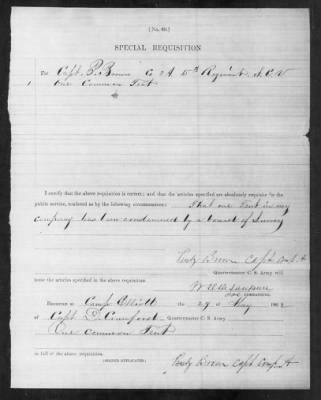 [No. 40.]
SPECIAL REQUISITION
For Capt. P. Brown Co A. 15th Regiment S.C.V
1 One Common Tent
I certify that the above requisition is correct; and that the articles specified are absolutely requisite for the
public service, rendered so by the following circumstances: That one Tent in my
company has been condemned by a board of Survey
Brown Capt Comp. A
Quartermaster C. S. Army will
issue the articles specified in the above requisition.
Commanding.
Received at Camp Elliott the 29 of May 1862
of Capt D. Crawford Quartermaster C. S. Army
One common Tent
in full of the above requisition.
(SIGNED DUPLICATES)
Brown Capt Comp A